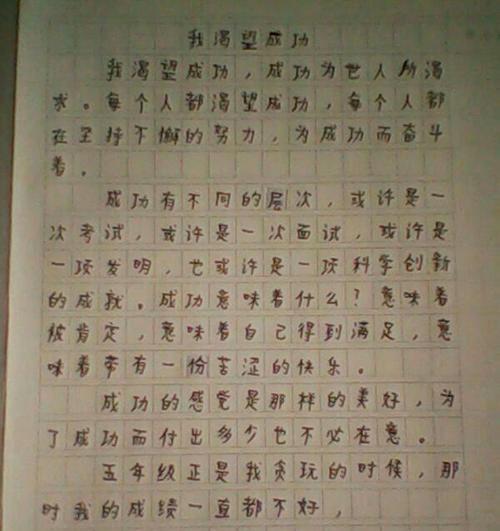 我渴望成功
我渴望成功，成功为世人所渴
求。每个人都渴望成功，每个人都
在坚持不懈的努力，为成功而奋斗
着。
成功有不同的层次，或许是一
次考试，或许是一次面试，或许是
一项发明，也或许是一项科学创新
的成就。成功意味着什么？意味着
被肯定，意味着自己得到满足，意
味着带有一份苦涩的快乐。
成功的感觉是那样的美好，为
了成功而付出多少也不必在意。
五年级正是我贪玩的时候，那
时我的成绩一直都不好，